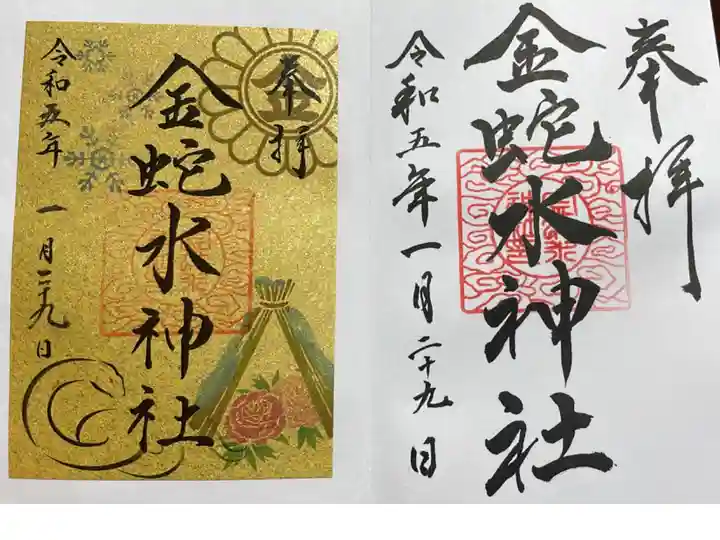 奉拝
金
金蛇水神社
令和五年 一月二十九日
奉拝
金蛇水神社
令和五年一月二十九日